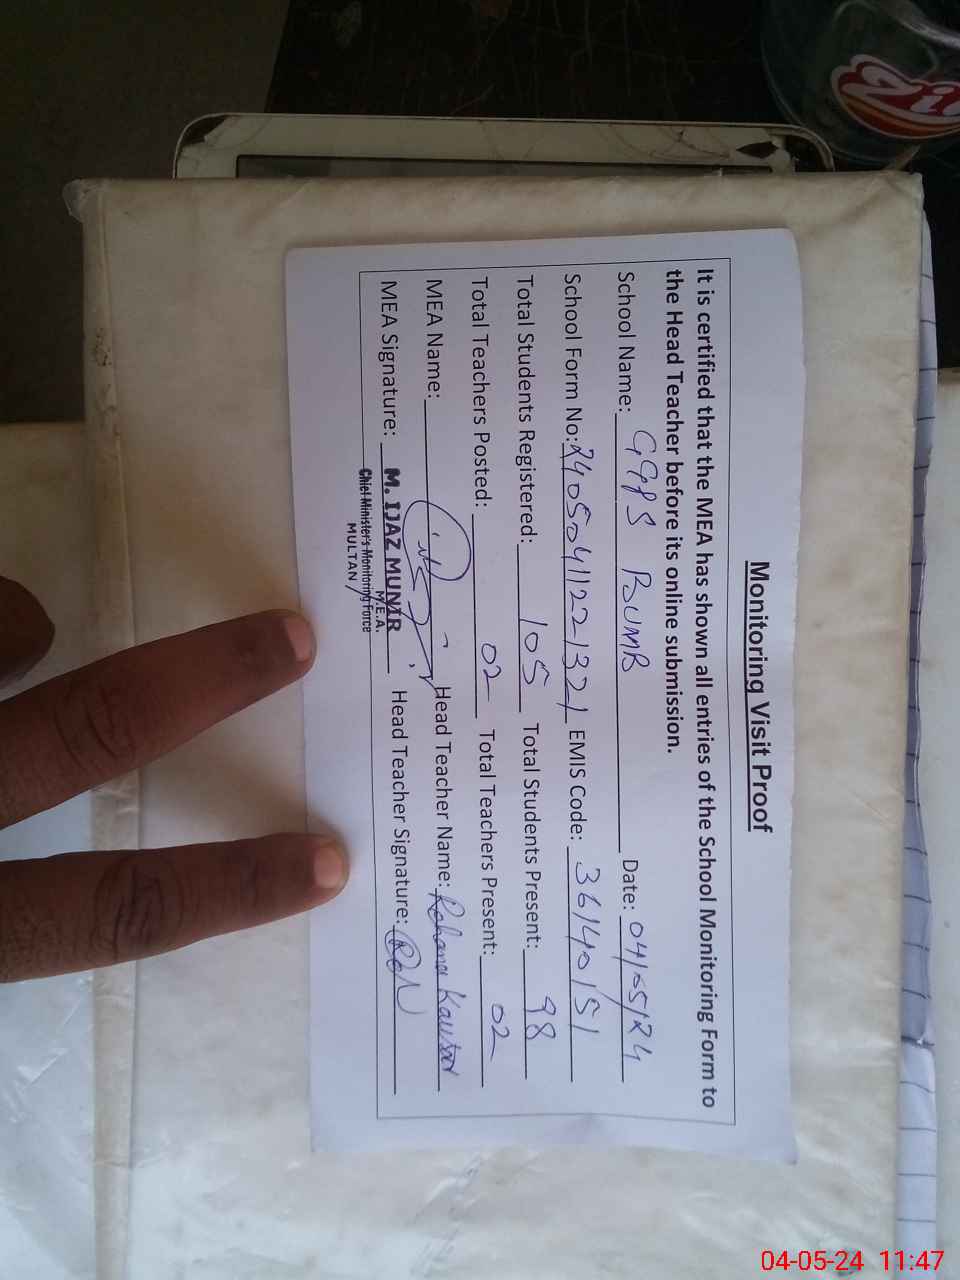 Monitoring Visit Proof
It is certified that the MEA has shown all entries of the School Monitoring Form to
the Head Teacher before its online submission.
School Name: GGPS BUMB Date: 04/05/24
School Form No: 24050411221321 EMIS Code: 36140151
Total Students Registered: 105 Total Students Present: 98
Total Teachers Posted: 02 Total Teachers Present: 02
MEA Name: Head Teacher Name: Rehana Kausar
MEA Signature: M. IJAZ MUNIR Head Teacher Signature:
M.E.A.
Chief Minister's Monitoring Force
MULTAN
04-05-24 11:47